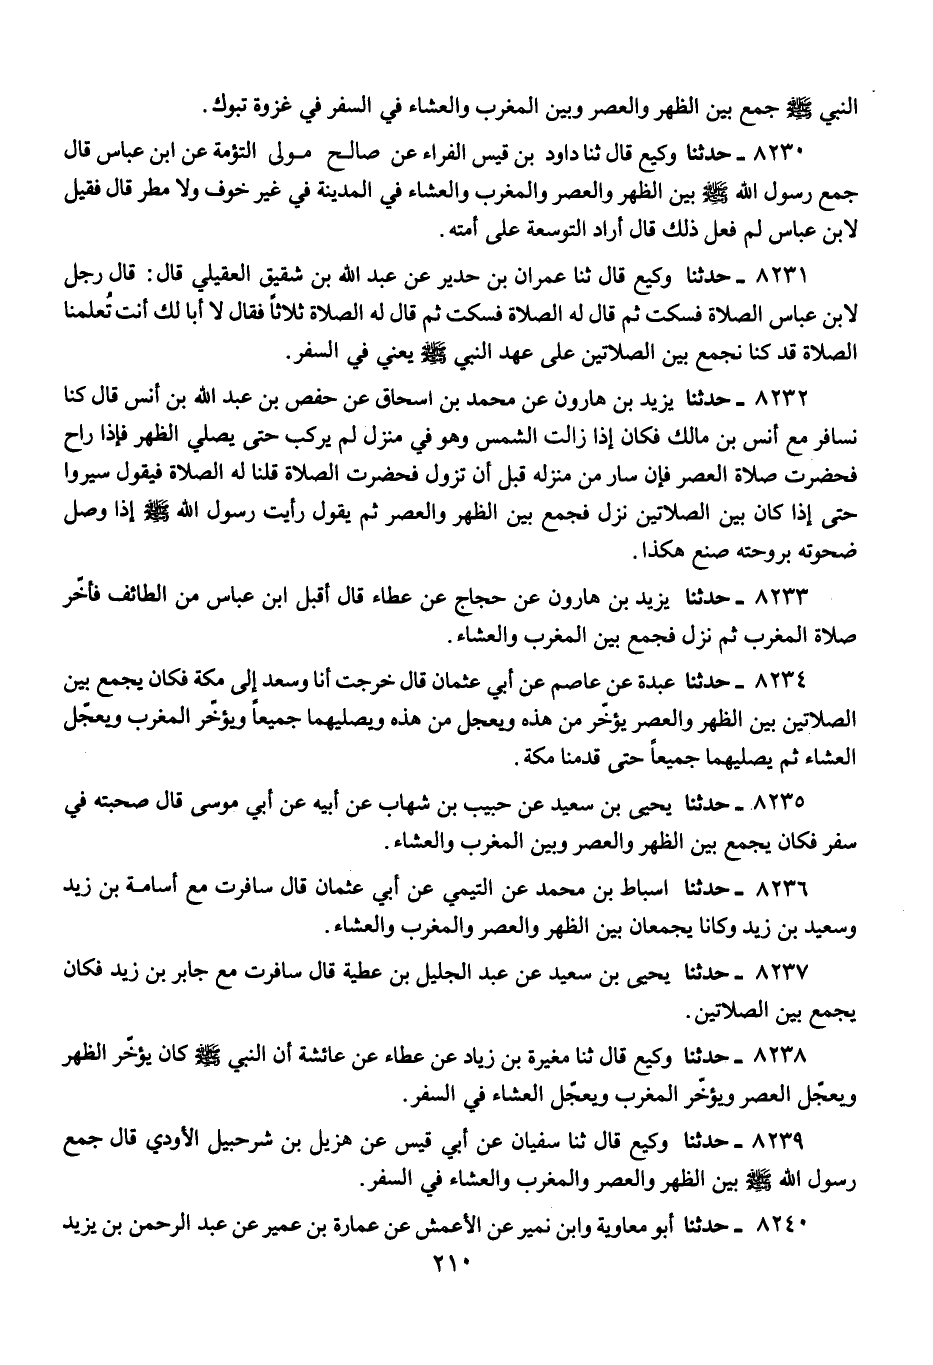 النبي ﷺ جمع بين الظهر والعصر وبين المغرب والعشاء في السفر في غزوة تبوك.
٨٢٣٠ - حدثنا وكيع قال ثنا داود بن قيس الفراء عن صالح مولى التؤمة عن ابن عباس قال
جمع رسول الله ﷺ بين الظهر والعصر والمغرب والعشاء في المدينة في غير خوف ولا مطر قال فقيل
لابن عباس لم فعل ذلك قال أراد التوسعة على أمته.
٨٢٣١ - حدثنا وكيع قال ثنا عمران بن حدير عن عبد الله بن شقيق العقيلي قال: قال رجل
لابن عباس الصلاة فسكت ثم قال له الصلاة فسكت ثم قال له الصلاة ثلاثاً فقال لا أبا لك أنت تُعلمنا
الصلاة قد كنا نجمع بين الصلاتين على عهد النبي ﷺ يعني في السفر.
٨٢٣٢ - حدثنا يزيد بن هارون عن محمد بن اسحاق عن حفص بن عبد الله بن أنس قال كنا
نسافر مع أنس بن مالك فكان إذا زالت الشمس وهو في منزل لم يركب حتى يصلي الظهر فإذا راح
فحضرت صلاة العصر فإن سار من منزله قبل أن تزول فحضرت الصلاة قلنا له الصلاة فيقول سيروا
حتى إذا كان بين الصلاتين نزل فجمع بين الظهر والعصر ثم يقول رأيت رسول الله ﷺ إذا وصل
ضحوته بروحته صنع هكذا.
٨٢٣٣ - حدثنا يزيد بن هارون عن حجاج عن عطاء قال أقبل ابن عباس من الطائف فأخّر
صلاة المغرب ثم نزل فجمع بين المغرب والعشاء.
٨٢٣٤ - حدثنا عبدة عن عاصم عن أبي عثمان قال خرجت أنا وسعد إلى مكة فكان يجمع بين
الصلاتين بين الظهر والعصر يؤخّر من هذه ويعجل من هذه ويصليهما جميعاً ويؤخّر المغرب ويعجّل
العشاء ثم يصليهما جميعاً حتى قدمنا مكة.
٨٢٣٥ - حدثنا يحيى بن سعيد عن حبيب بن شهاب عن أبيه عن أبي موسى قال صحبته في
سفر فكان يجمع بين الظهر والعصر وبين المغرب والعشاء.
٨٢٣٦ - حدثنا اسباط بن محمد عن التيمي عن أبي عثمان قال سافرت مع أسامة بن زيد
وسعيد بن زيد وكانا يجمعان بين الظهر والعصر والمغرب والعشاء.
٨٢٣٧ - حدثنا يحيى بن سعيد عن عبد الجليل بن عطية قال سافرت مع جابر بن زيد فكان
يجمع بين الصلاتين.
٨٢٣٨ - حدثنا وكيع قال ثنا مغيرة بن زياد عن عطاء عن عائشة أن النبي ﷺ كان يؤخّر الظهر
ويعجّل العصر ويؤخّر المغرب ويعجّل العشاء في السفر.
٨٢٣٩ - حدثنا وكيع قال ثنا سفيان عن أبي قيس عن هزيل بن شرحبيل الأودي قال جمع
رسول الله ﷺ بين الظهر والعصر والمغرب والعشاء في السفر.
٨٢٤٠ - حدثنا أبو معاوية وابن نمير عن الأعمش عن عمارة بن عمير عن عبد الرحمن بن يزيد
٢١٠